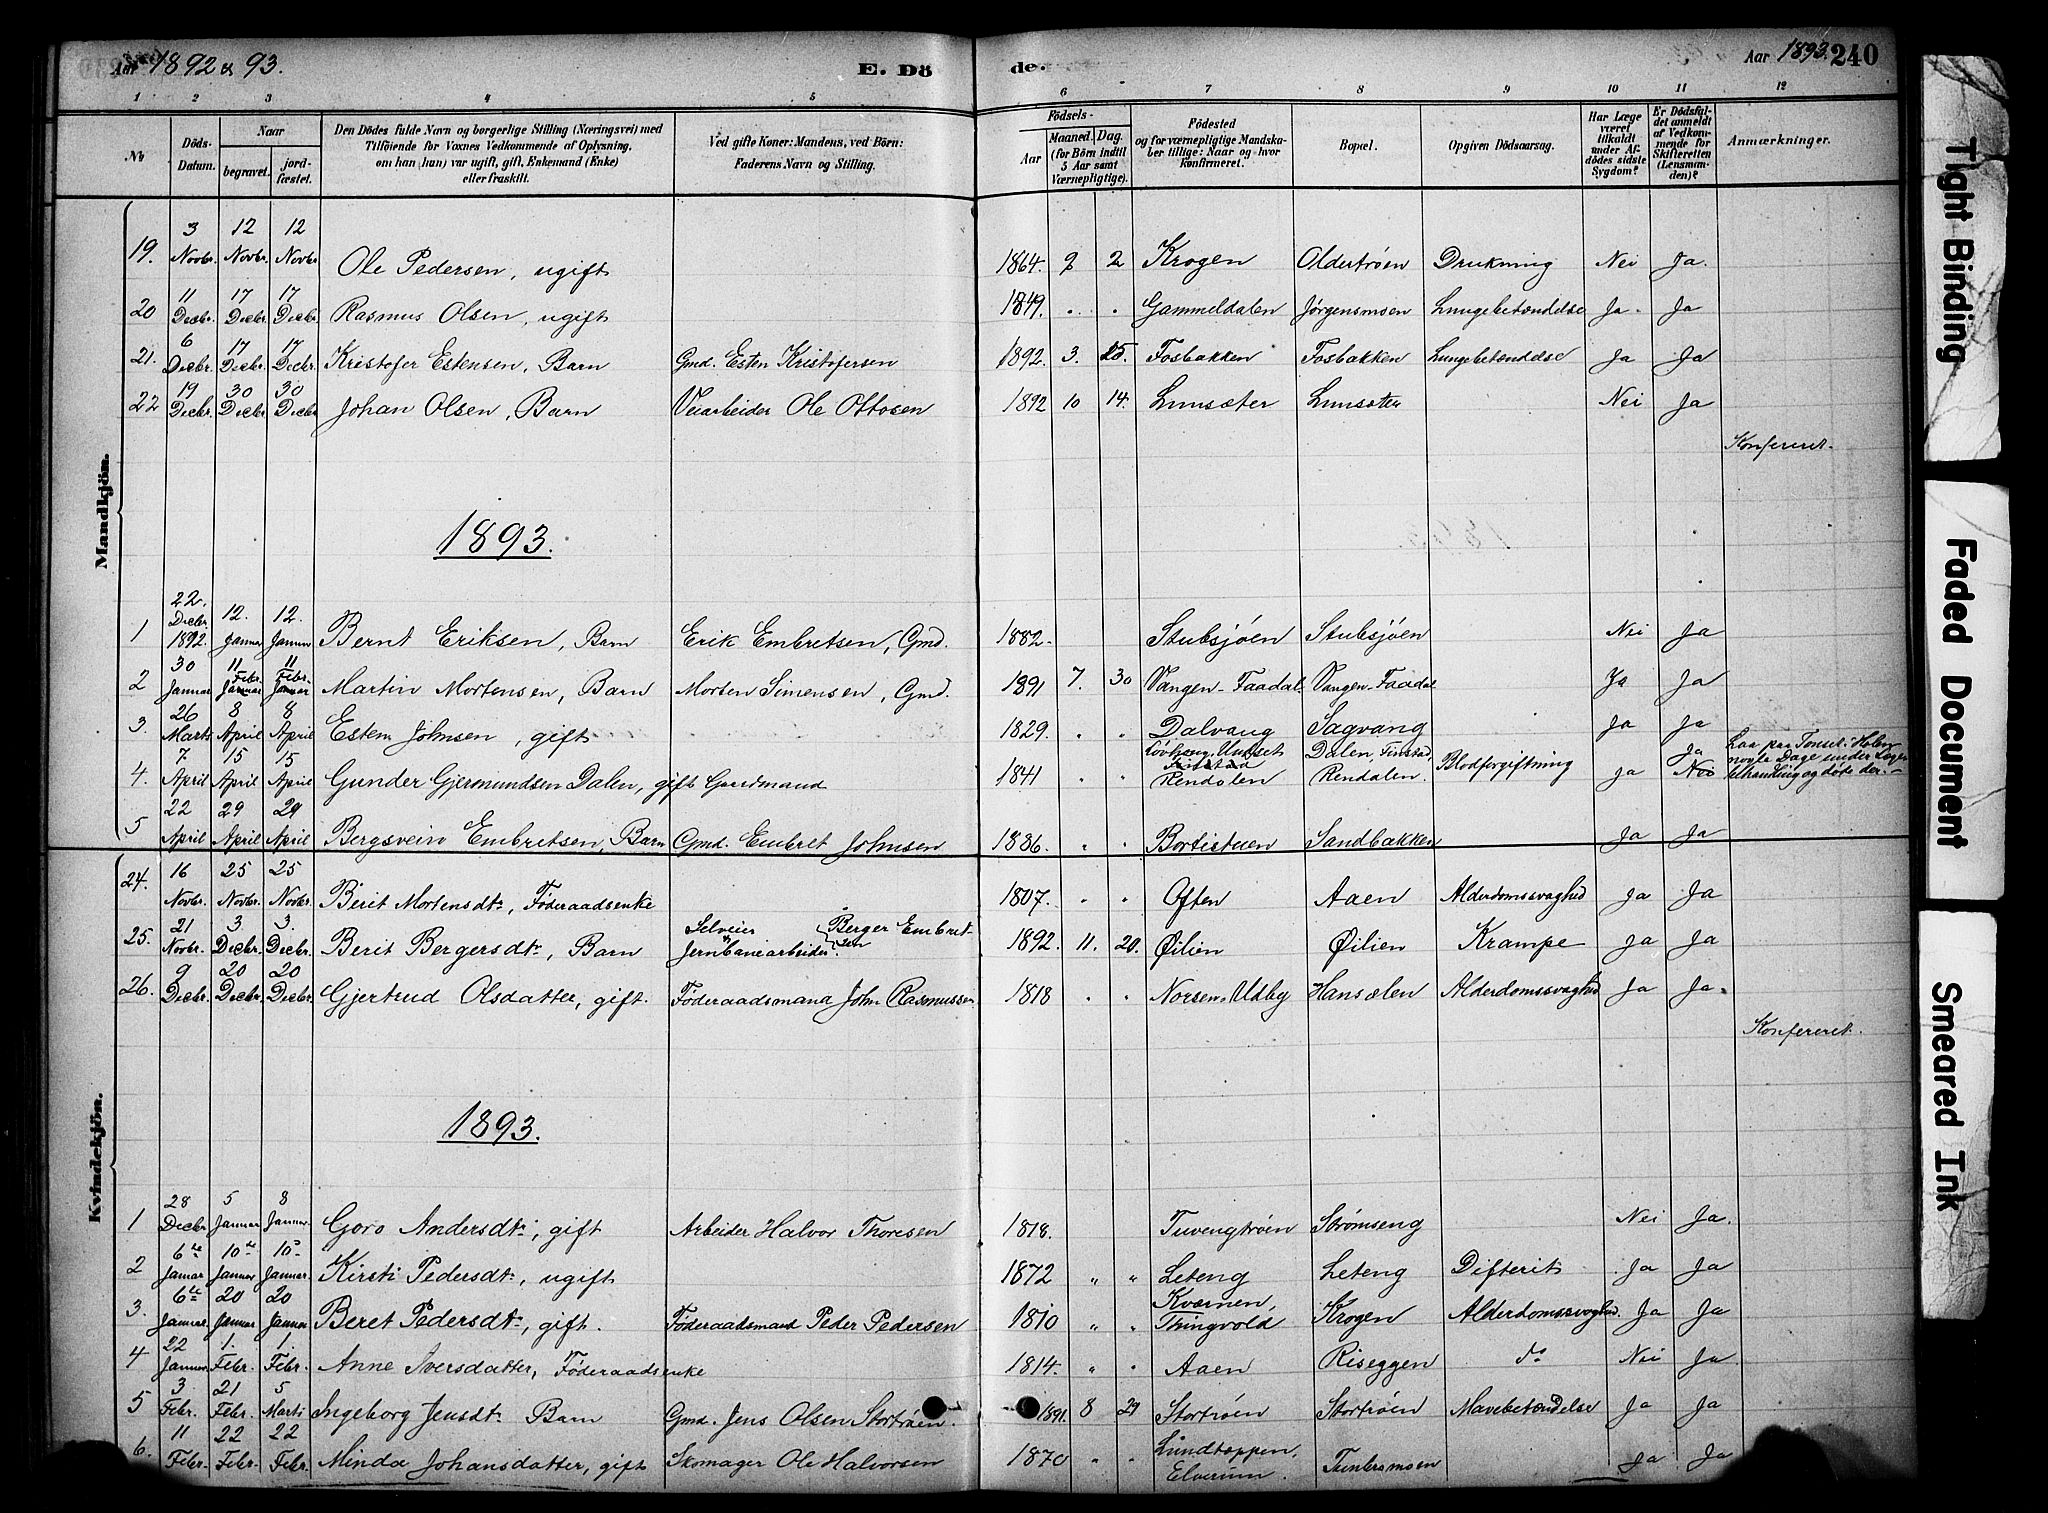 Aar 1892 & 93. E. Dö de. Aar 1893. 240
1 2 3 4 5 6 7 8 9 10 11 12
No Döds-Datum. Naar begravet. jordfæstet. Den Dödes fulde Navn og borgerlige Stilling (Næringsvei) med Tilföiende for Voxnes Vedkommende af Oplysning, om han (hun) var ugift, gift, Enkemand (Enke) eller fraskilt. Ved gifte Koner: Mandens, ved Börn: Faderens Navn og Stilling. Födsels- Aar Maaned. Dag. (for Börn indtil 5 Aar samt Værnepligtige). Födested og for værnepligtige Mandskaber tillige: Naar og hvor konfirmeret. Bopæl. Opgiven Dödsaarsag. Har Læge været tilkaldt under Afdödes sidste Sygdom? Er Dödsfaldet anmeldt af Vedkommende for Skifteretten (Lensmanden)? Anmærkninger.
Mandkjön.
19. 3 Novbr. 12 Novbr. 12 Novbr Ole Pedersen, ugift 1864. 2 2 Krogen Oldertrøen Drukning Nei Ja.
20 11 Decbr. 17 Decbr. 17 Decbr. Rasmus Olsen, ugift 1849. . . Gammeldalen Jørgensmoen Lungebetændelse Ja. Ja
21. 6 Decbr. 17 Decbr. 17 Decbr. Kristofer Estensen, Barn Gmd. Esten Kristofersen 1892. 3. 25. Fosbakken Fosbakken Lungebetændelse Ja Ja
22 19 Decbr. 30 Decbr. 30 Decbr. Johan Olsen, Barn Veiarbeider Ole Ottosen 1892 10 14. Lunsæter Lunsæter Nei Ja
Konfereret.
1893.
1 22. Decbr. 1892. 12. Januar 12. Januar Bernt Eriksen, Barn Erik Embretsen, Gmd. 1882. Stubsjøen Stubsjøen Nei Ja
2 30 Januar 11 Febr. Januar 11 Febr. Januar Martin Mortensen, Barn Morten Simensen, Gmd. 1891 7. 30 Vangen-Faadal Vangen-Faadal Ja Ja
3. 26 Marts 8 April 8 April Esten Johnsen, gift 1829. . . Dalvang Sagvang Ja Ja
4. 7 April 15 April 15 April Gunder Gjermundsen Dalen, gift Gaardmand 1841 " " Undset Rendalen Dalen, Finstad, Rendalen. Blodforgiftning Ja Ja Laa paa Tonset nogle Dage under Læge behandling og døde der.
5 22 April 29 April 29 April Bergsvein Embretsen, Barn Gmd. Embret Johnsen 1886. " " Bortistuen Sandbakken Ja Ja
Kvindekjön.
24. 16 Novbr. 25 Novbr. 25 Novbr. Berit Mortensdtr, Føderaadsenke 1807. . . Often Aaen Alderdomssvaghed Ja Ja
25. 21 Novbr. 3 Decbr. 3. Decbr. Berit Bergersdtr, Barn Selveier & Jernbanearbeider Berger Embretsen 1892. 11. 20. Øilien Øilien Krampe Ja Ja
26. 9 Decbr. 20 Decbr. 20 Decbr. Gjertrud Olsdatter, gift. Føderaadsmand John Rasmussen 1818 . . Norsen. Udby Hansælen Alderdomssvaghed Ja Ja
Konfereret.
1893.
1 28 Decbr. 5 Januar 8 Januar. Goro Andersdtr, gift Arbeider Halvor Thoresen 1818. Tuvengtrøen Strømseng Nei Ja.
2 6te Januar 10de Januar 10de Januar. Kirsti Pedersdtr, ugift 1872 " " Leteng Leteng Difterit Ja Ja
3. 6te Januar. 20 Januar 20 Januar Beret Pedersdtr, gift. Føderaadsmand Peder Pedersen 1810 " " Kværnen, Thingvold Krogen Alderdomssvaghed. Ja Ja
4 22 Januar. 1. Febr. 1. Febr. Anne Iversdatter, Føderaadsenke 1814. " " Aaen Riseggen do Nei Ja
5 3 Febr. 21 Febr. 5 Marts Ingeborg Jensdtr Barn Gmd. Jens Olsen Stortrøen. 1891. 8 29 Stortrøen Stortrøen Mavebetændelse Ja Ja
6. 11 Febr. 22 Febr. 22 Febr. Minda Johansdatter, gift Skomager Ole Halvorsen 1870 " " Lundtoppen, Elverum. Ja Ja
Tight Binding
Faded Document
Smeared Ink